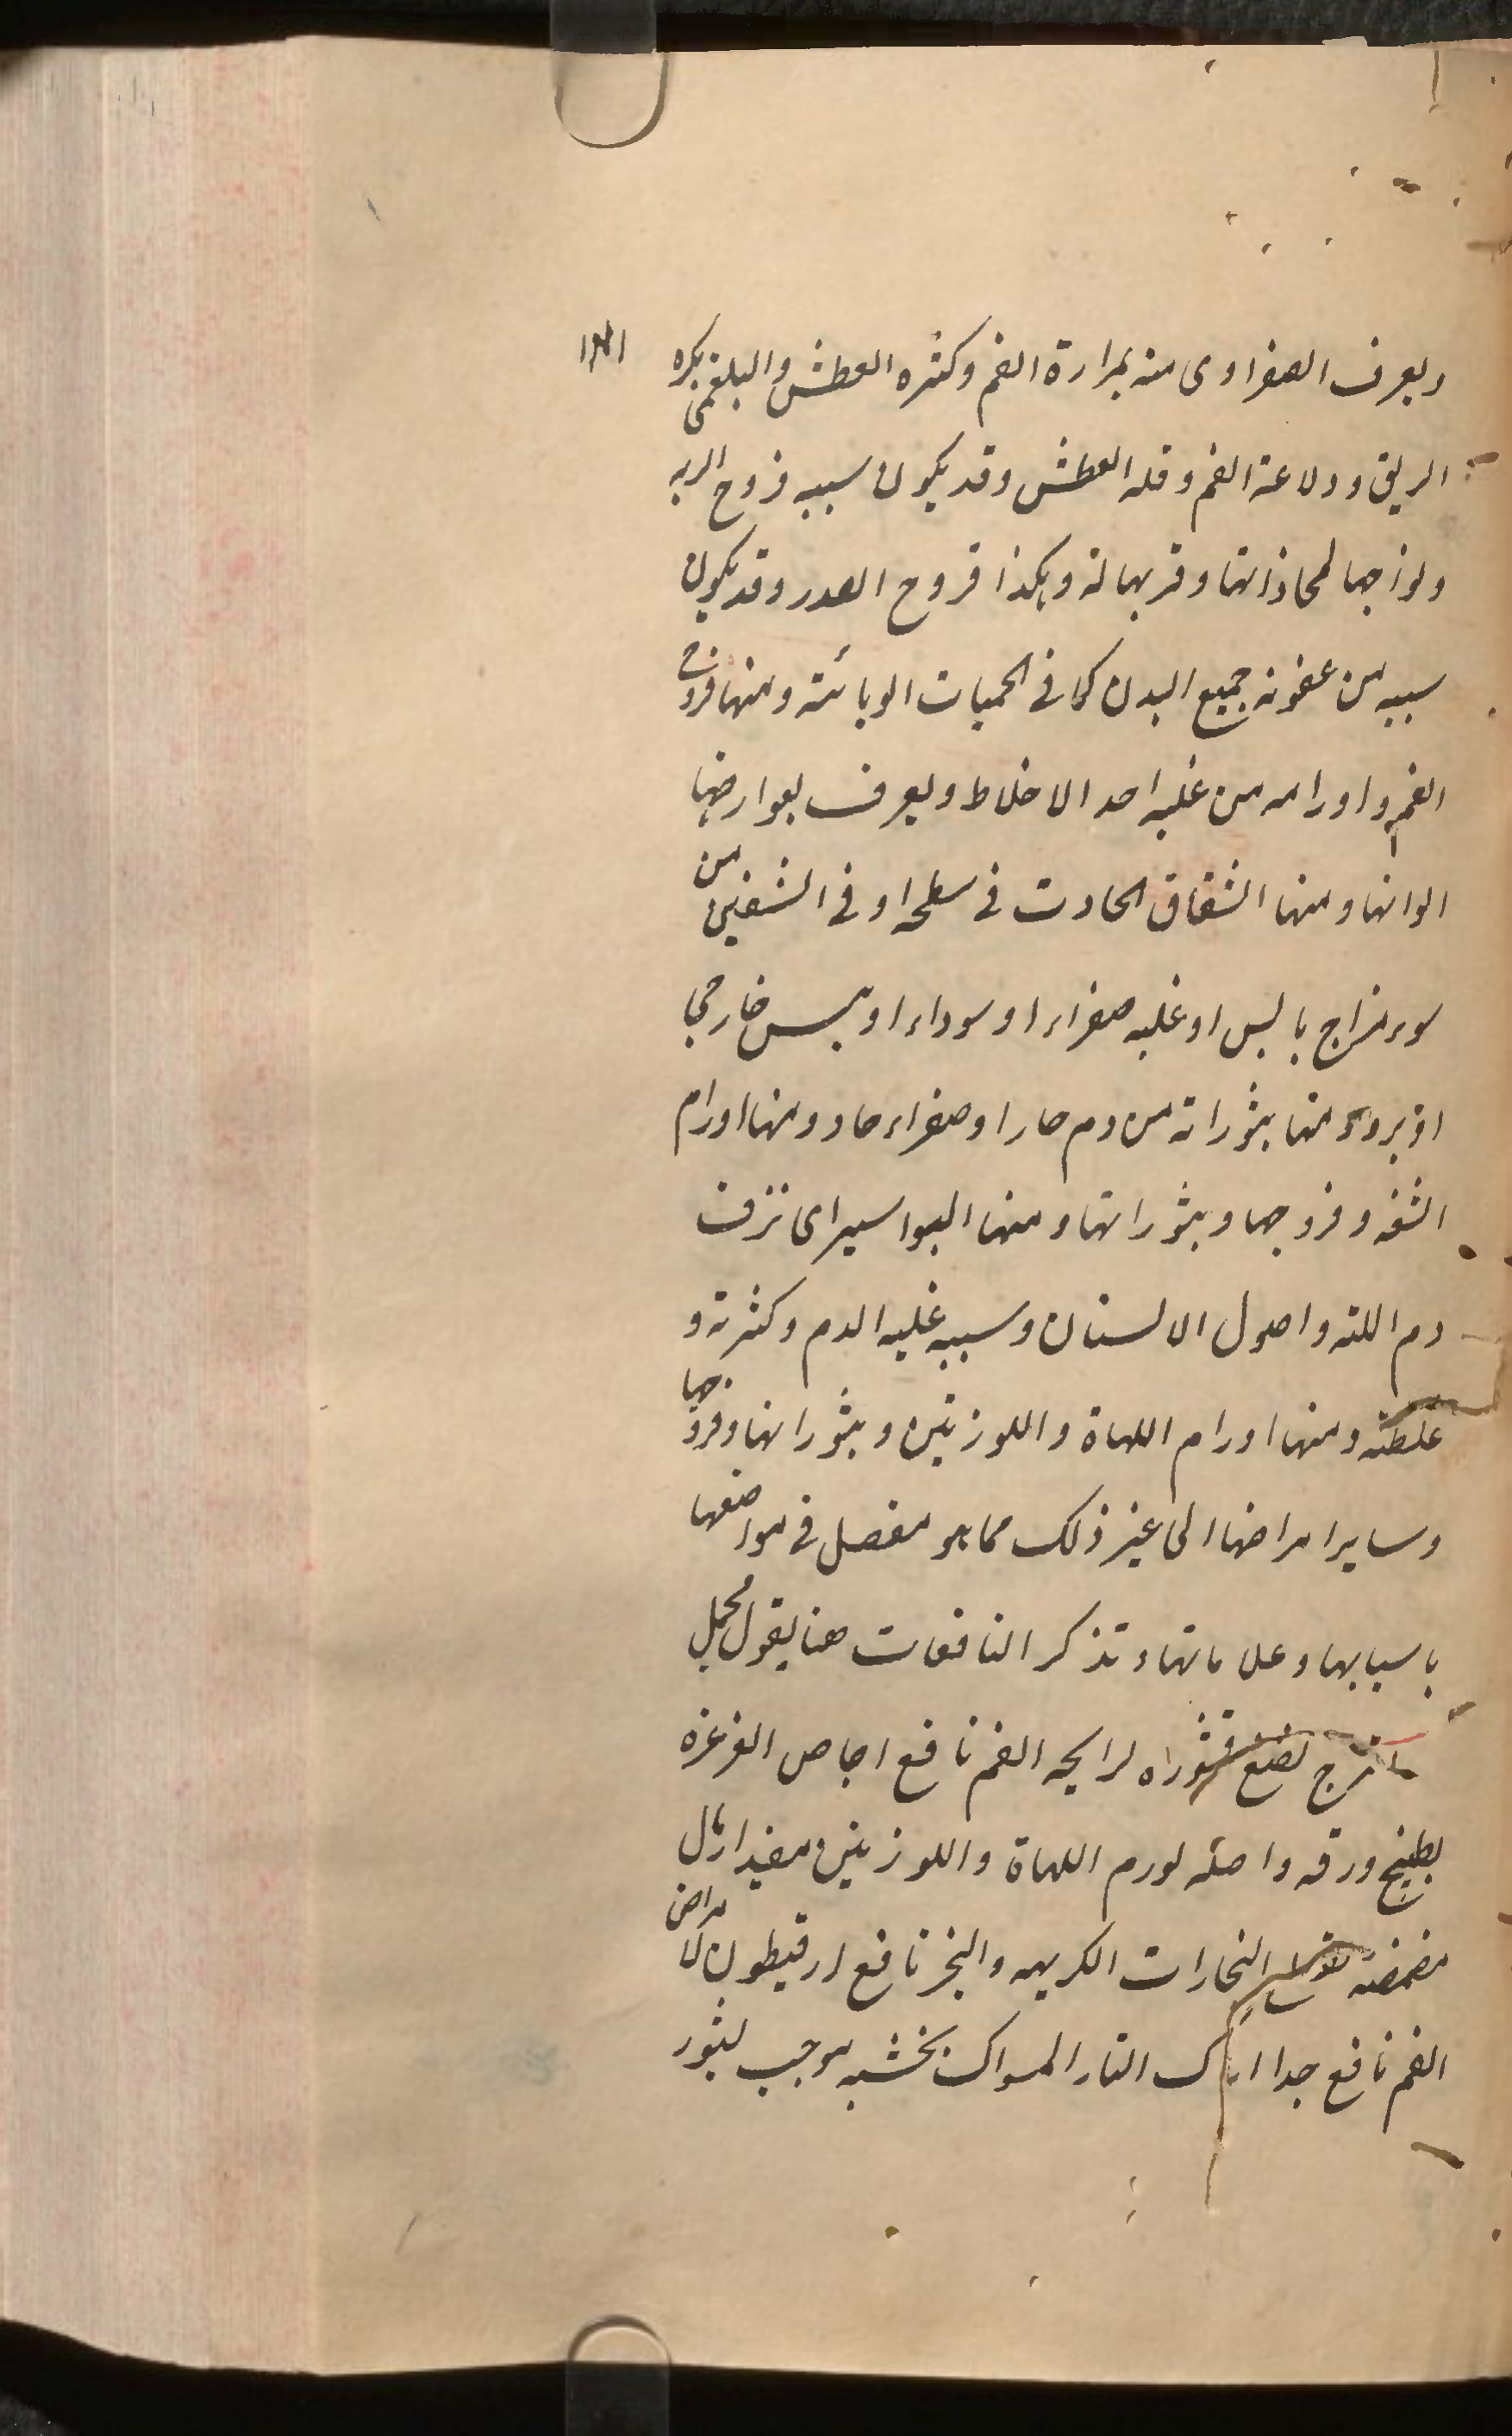 ويعرف الصفراوى منه بمرارة الفم وكثره العطش والبلغمى بكره
الريق ودلاعة الفم وقله العطش وقد يكون سببه قروح الريه
ونواحيها لمحاذاتها وقربها له وهكذا قروح الصدر وقد يكون
سببه من عفونه جميع البدن كما فى الحميات الوبائية ومنها قروح
الفم واورامه من غلبه احد الاخلاط ويعرف بعوارضها
الوانها ومنها الشقاق الحادث فى سطحه او فى الشفتين من
سوء مزاج يابس او غلبه صفراء او سوداء او يبس خارجى
او برد ومنها بثوراته من دم حار او صفراء حاد ومنها اورام
الشفه وقروحها وبثوراتها ومنها البواسير اى نزف
دم اللثه واصول الاسنان وسببه غلبه الدم وكثرته و
غلظته ومنها اورام اللهاة واللوزتين وبثوراتها وقروحها
وساير امراضها الى غير ذلك مما هو مفصل فى مواضعها
باسبابها وعلاماتها وتذكر النافعات هنا بقول مجمل
اترج قشوراه لرايحه الفم نافع اجاص الغرغره
بطبيخ ورقه واصله لورم اللهاة واللوزتين مفيد اراك
مضمضته البخارات الكريهه والبخر نافع ارقيطون لامراض
الفم نافع جدا اراك المسواك بخشبه موجب لبثور